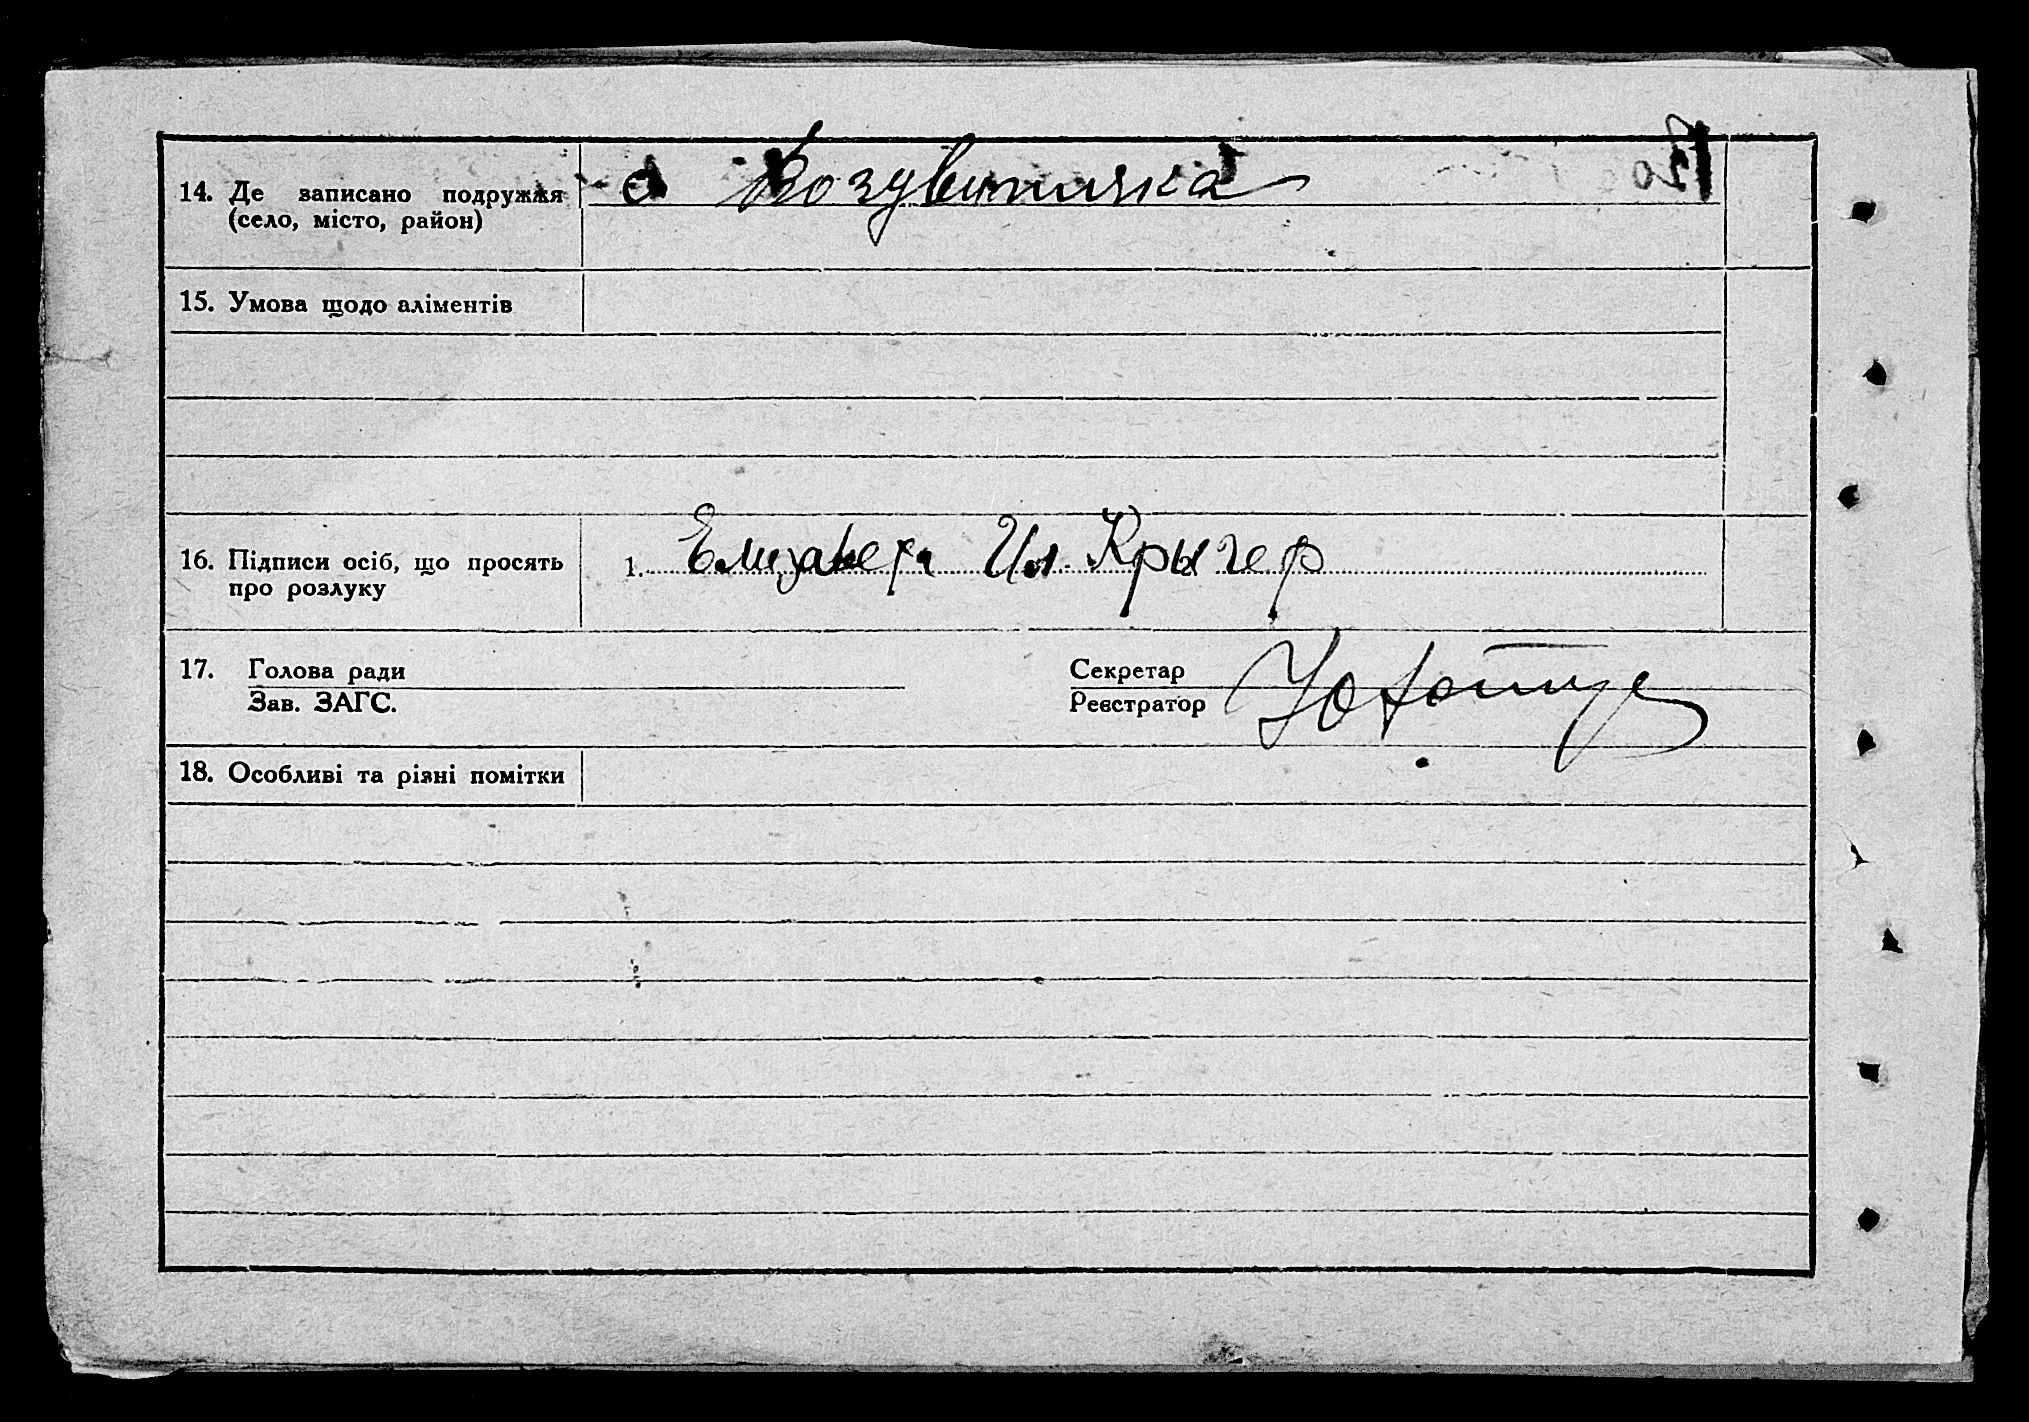 14. Де записано подружжя с Возувитичка
(село, місто, район)
15. Умова щодо аліментів
16. Підписи осіб, що просять 1. Елизавета Ил. Крыгер
про розлуку
17. Голова ради Секретар
Зав. ЗАГС. Реєстратор
18. Особливі та різні помітки